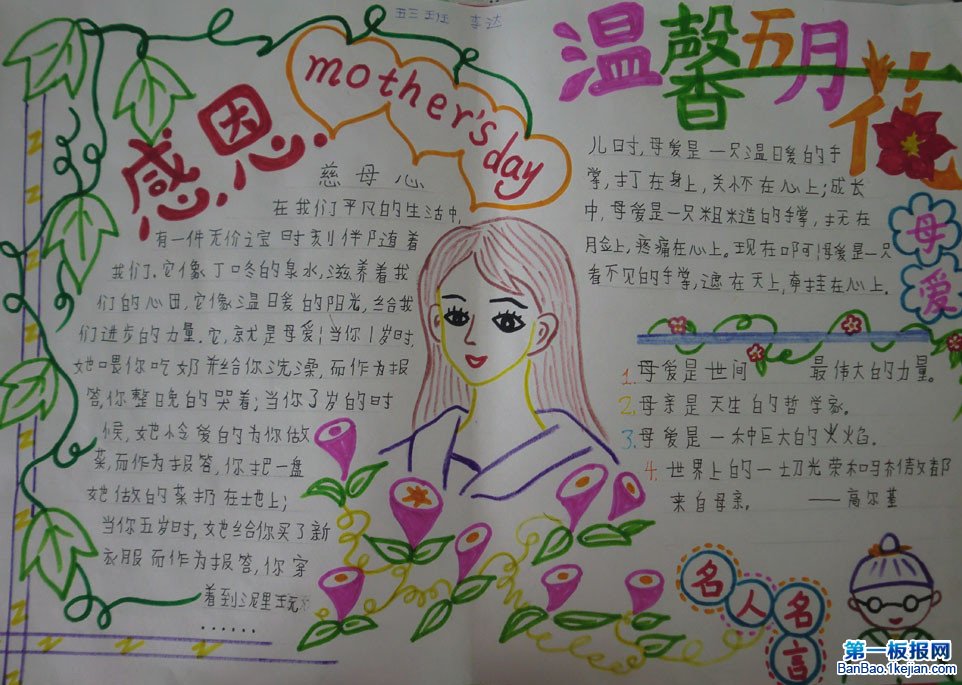 五三班 李达
mother's day
感恩
慈母心
在我们平凡的生活中,
有一件无价之宝时刻伴随着
我们.它像丁咚的泉水,滋养着我
们的心田,它像温暖的阳光,给我
们进步的力量.它,就是母爱!当你1岁时,
她喂你吃奶并给你洗澡,而作为报
答,你整晚的哭着;当你3岁的时
候,她怜爱的为你做
菜,而作为报答,你把一盘
她做的菜扔在地上;
当你五岁时,她给你买了新
衣服而作为报答,你穿
着到泥里玩
......
温馨五月花
儿时,母爱是一只温暖的手
掌,打在身上,关怀在心上;成长
中,母爱是一只粗糙的手掌,抚在
脸上,疼痛在心上。现在啊!母爱是一只
看不见的手掌,遮在天上,牵挂在心上。
母爱
1.母爱是世间 最伟大的力量。
2.母亲是天生的哲学家。
3.母爱是一种巨大的火焰。
4.世界上的一切光荣和骄傲都
来自母亲。 ——高尔基
名人名言
第一板报网
BanBao.1kejian.com